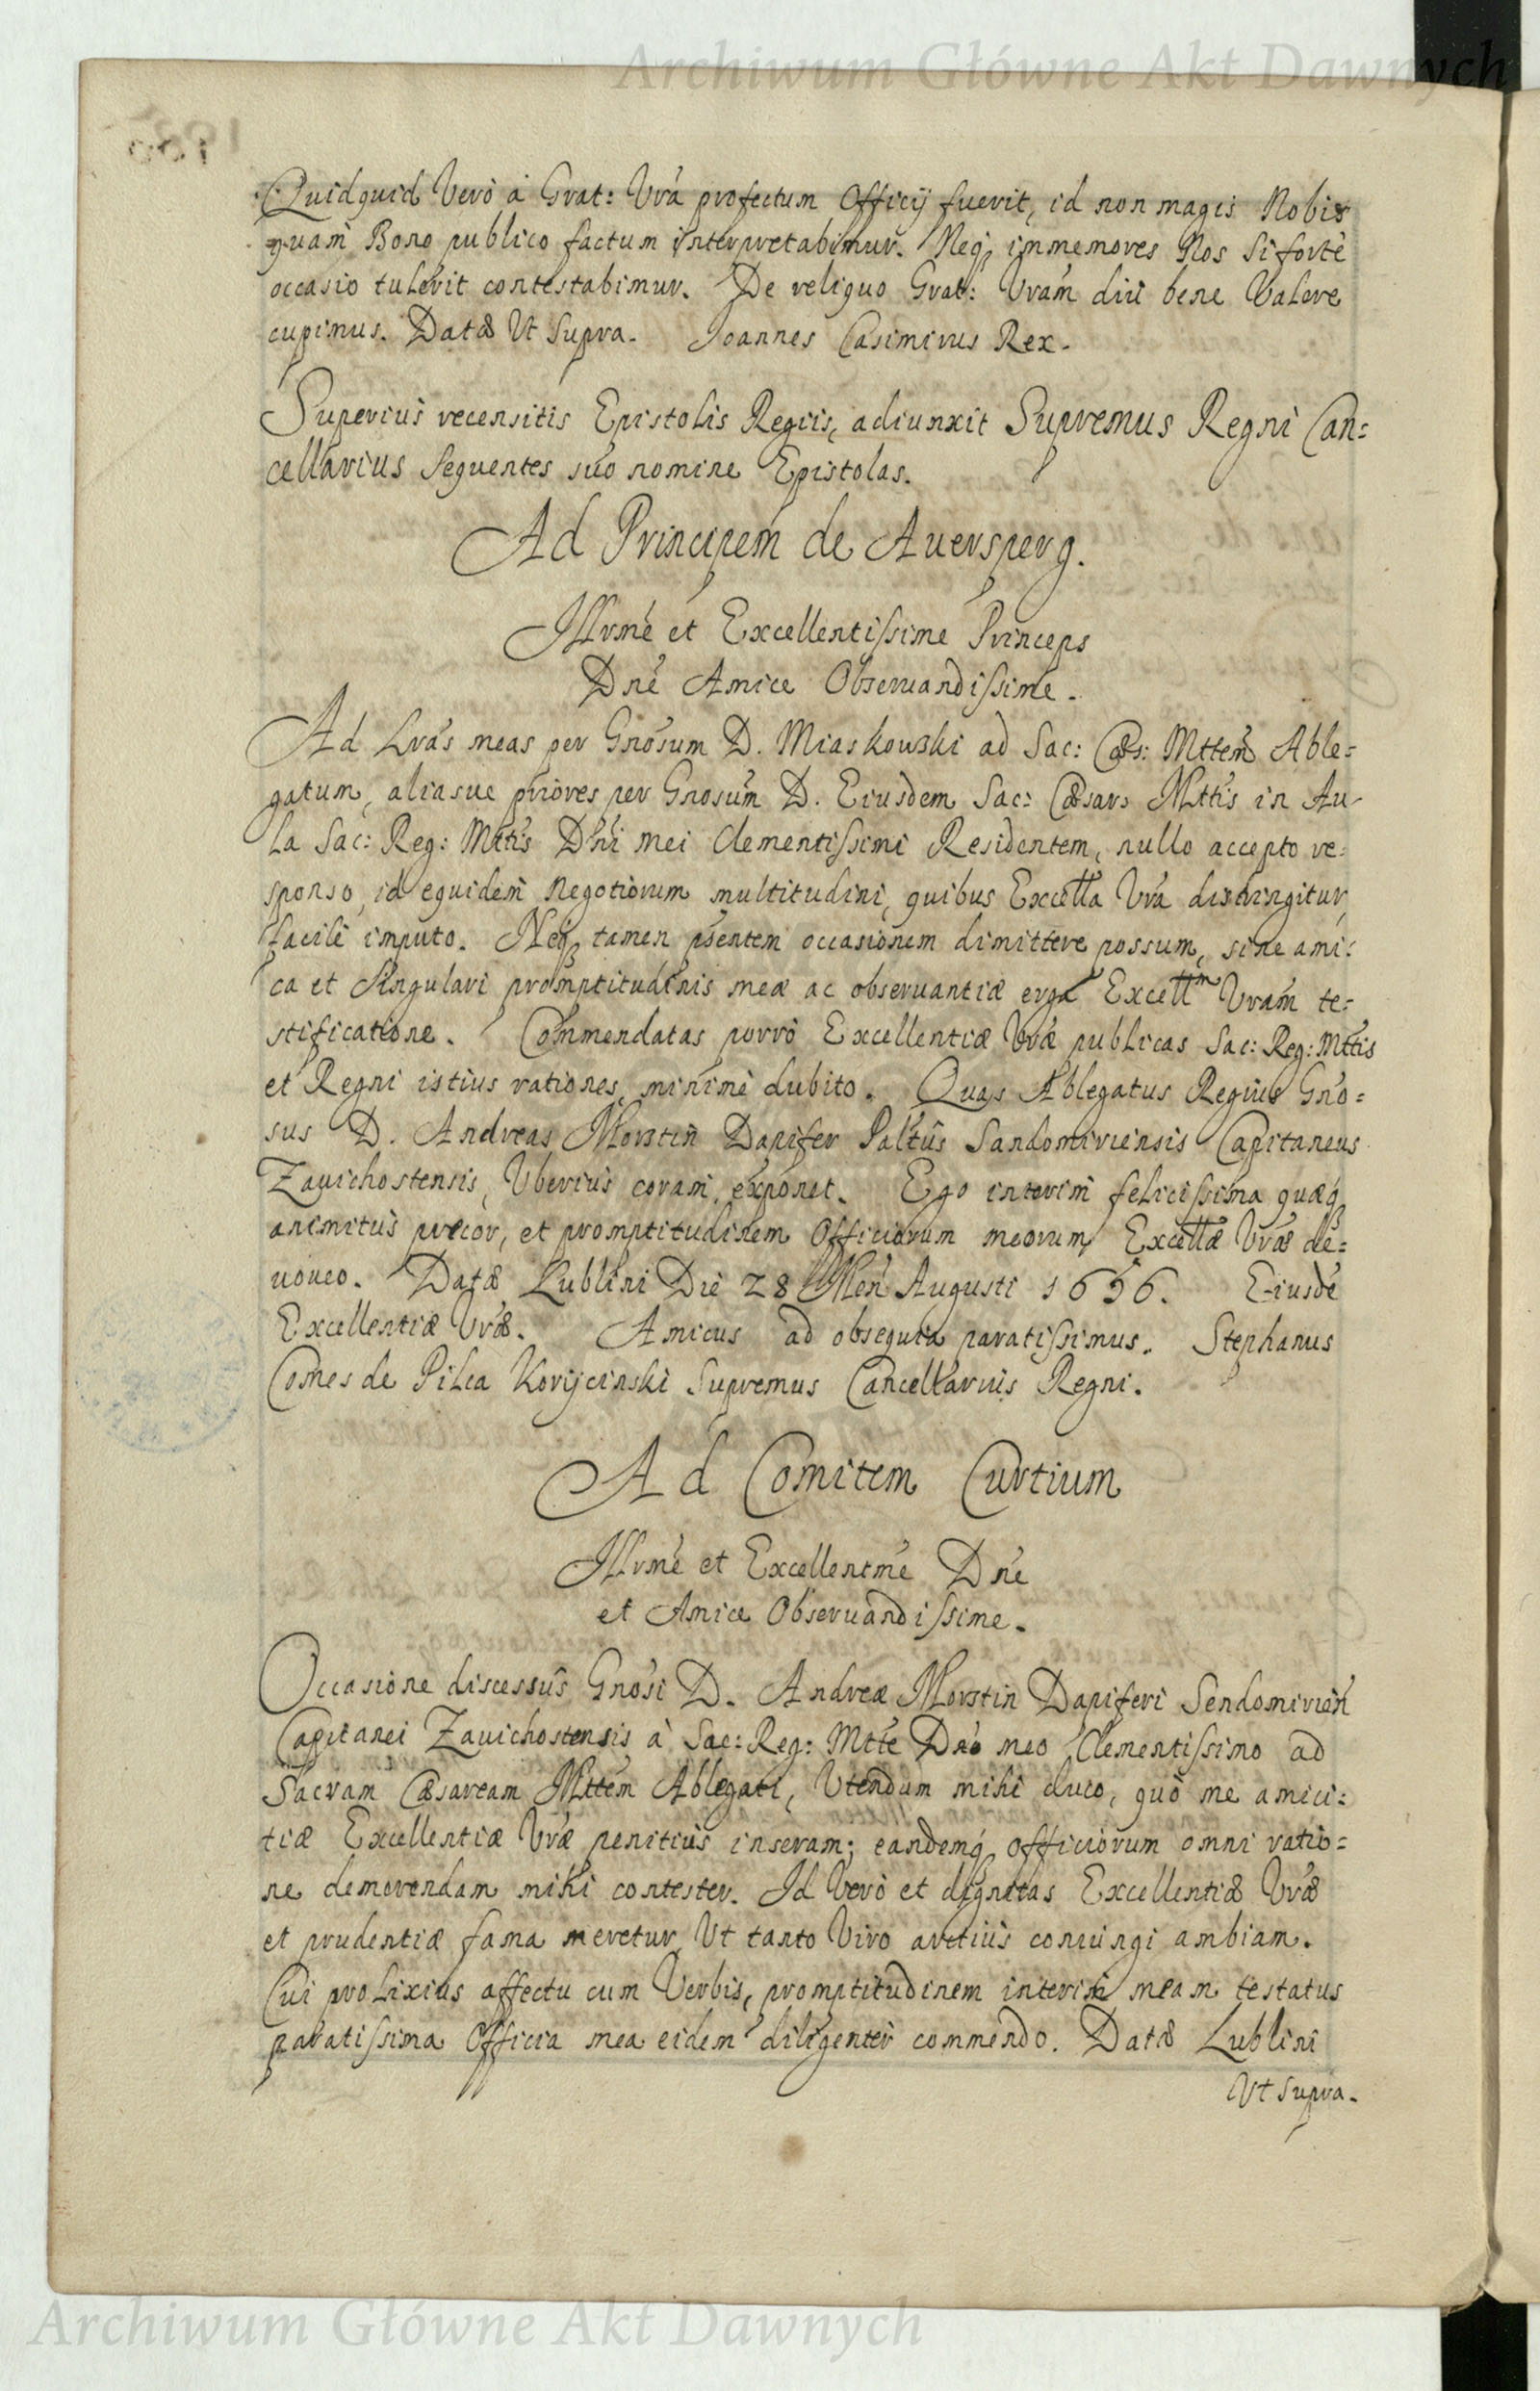 Archiwum Główne Akt Dawnych
Quidquid Verò à Grat: Vrã profectum Officij fuerit, id non magis Nobis
quam Bono publico factum interpretabimur. Neq3 immemores Nos si fortè
occasio tulerit contestabimur. De reliquo Grat: Vrãm diù bene Valere
cupimus. Datæ Ut supra. Joannes Casimirus Rex.
Superiùs recensitis Epistolis Regiis, adiunxit Supremus Regni Can=
cellarius sequentes suo nomine Epistolas.
Ad Principem de Auersperg.
Illrme et Excellentissime Princeps
Dne Amice Obseruandissime.
Ad Lrás meas per Gnosum D. Miaskowski ad Sac: Cæs: Mttem Able=
gatum, aliasue priores per Gnosum D. Eiusdem Sac: Cæsar: Mttis in Au-
la Sac: Reg: Mttis Dni mei Clementissimi Residentem, nullo accepto re=
sponso, id equidem negotiorum multitudini, quibus Excellã Vrã distringitur,
facilè imputo. Neq3 tamen pñtem occasionem dimittere possum, sine ami=
ca et singulari promptitudinis meæ ac obseruantiæ erga Excellm Vrãm te=
stificatione. Commendatas porrò Excellentiæ Vræ publicas Sac: Reg: Mttis
et Regni istius rationes, minimè dubito. Quas Ablegatus Regius Gno=
sus D. Andreas Morstin Dapifer Paltus Sandomiriensis Capitaneus
Zauichostensis, Vberiùs coram exponet. Ego interim felicissima quæq3
animitùs precor, et promptitudinem Officiorum meorum Excellæ Vræ de=
uoueo. Datæ Lublini Die 28 Men Augusti 1656. Eiusdẽ
Excellentiæ Vræ. Amicus ad obsequia paratissimus. Stephanus
Comes de Pilca Korijcinski Supremus Cancellarius Regni.
Ad Comitem Curtium
Illrme et Excellentme Dne
et Amice Obseruandissime.
Occasione discessûs Gnosi D. Andreæ Morstin Dapiferi Sendomirień
Capitanei Zauichostensis à Sac: Reg: Mtte Dno meo Clementissimo ad
Sacram Cæsaream Mttem Ablegati, Vtendum mihi duco, quò me amici=
tiæ Excellentiæ Vræ penitiùs inseram; eandemq3 officiorum omni ratio=
ne demerendam mihi contester. Id Verò et dignitas Excellentiæ Vræ
et prudentiæ fama meretur, Vt tanto Viro arctiùs coniungi ambiam.
Cui prolixius affectu cum Verbis, promptitudinem interim meam testatus
paratissima Officia mea eidem diligenter commendo. Datæ Lublini
Vt supra.
Archiwum Główne Akt Dawnych